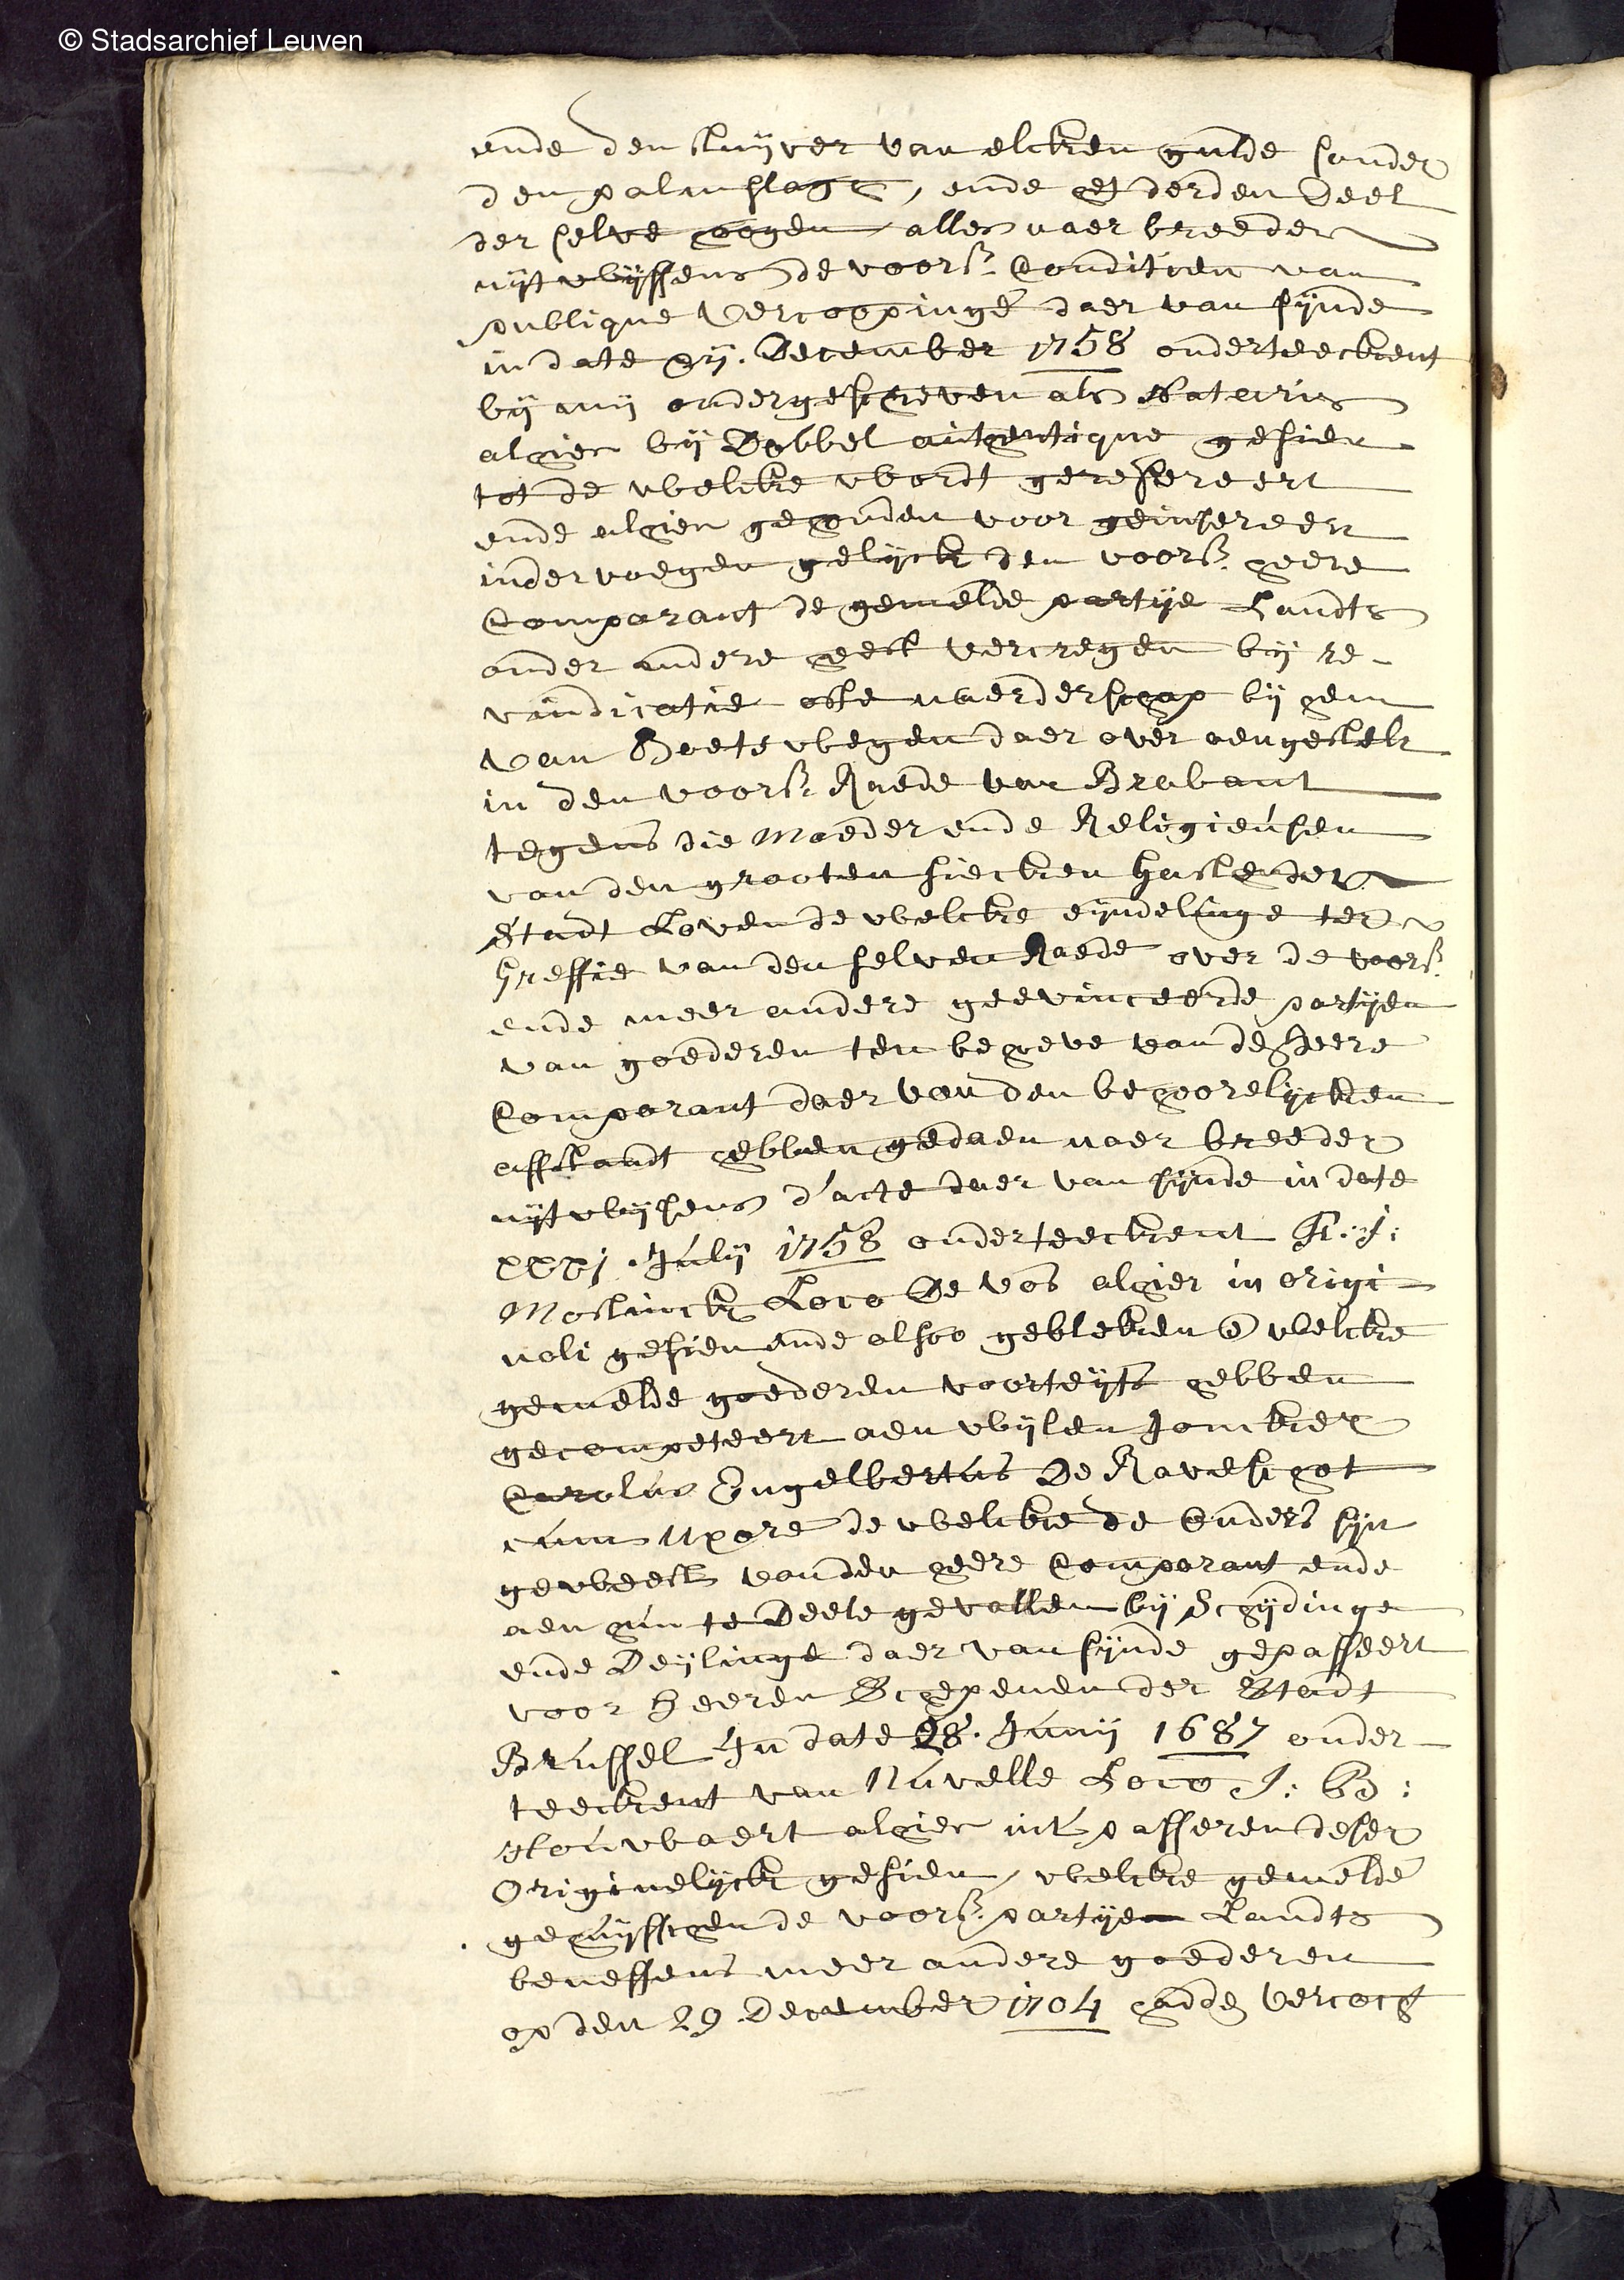 © Stadsarchief Leuven
ende den stuijver van elcken gulde sonder
den palmslagh, ende het derden Deel
der selve hogen alles naer breeder
uijtwijssens de voors: Conditien van
publique Vercoopinge daer van sijnde
in date xij. December 1758 onderteeckent
bij mij ondergeschreven als Notaris
alhier bij Dobbel authentique gesien
tot de welcke wordt gerefereert
ende alhier gehouden voor geinsereert
indervoegen gelijck den voors: heere
Comparant de gemelde partije Landts
onder andere heeft vercregen bij re-
vindicatie ofte naerderschap bij hem
van Rechtswegen daer over aengestelt
in den voors: Raede van Brabant
tegens die Moeder ende Religieusen
van den grooten siecken Gasthuyse der
Stadt Loven de welcke eijndelinge ter
Greffie van den selven Raede over de voors:
ende meer andere geevinceerde partijen
van goederen ten behoeve van de heere
Comparant daer van den behoorelijcken
affstandt hebben gedaen naer breeder
uijtwijsens d'acte daer van sijnde in date
xxxj July 1758 onderteeckent
Mostinck Loco De Vos alhier in origi-
nali gesien ende alsoo gebleken @ welcke
gemelde goederen voorteijts hebben
gecompeteert aen wijlen Joncker
Carolus Engelbertus De Raveschot
cum uxore de welcke de ouders sijn
geweest van den heere Comparant ende
aen hun te Deele gevallen bij Scheijdinge
ende Deijlinge daer van sijnde gepasseert
voor heeren Schepenen der Stadt
Brussel In date 28. Junij 1687 onder-
teeckent van Nuvelle Loco J: B:
Houwaert alhier int passeren deser
Originelijck gesien, welcke gemelde
gehuysschen de voors: partijen Landts
beneffens meer andere goederen
op den 29 December 1704 hadden Vercocht